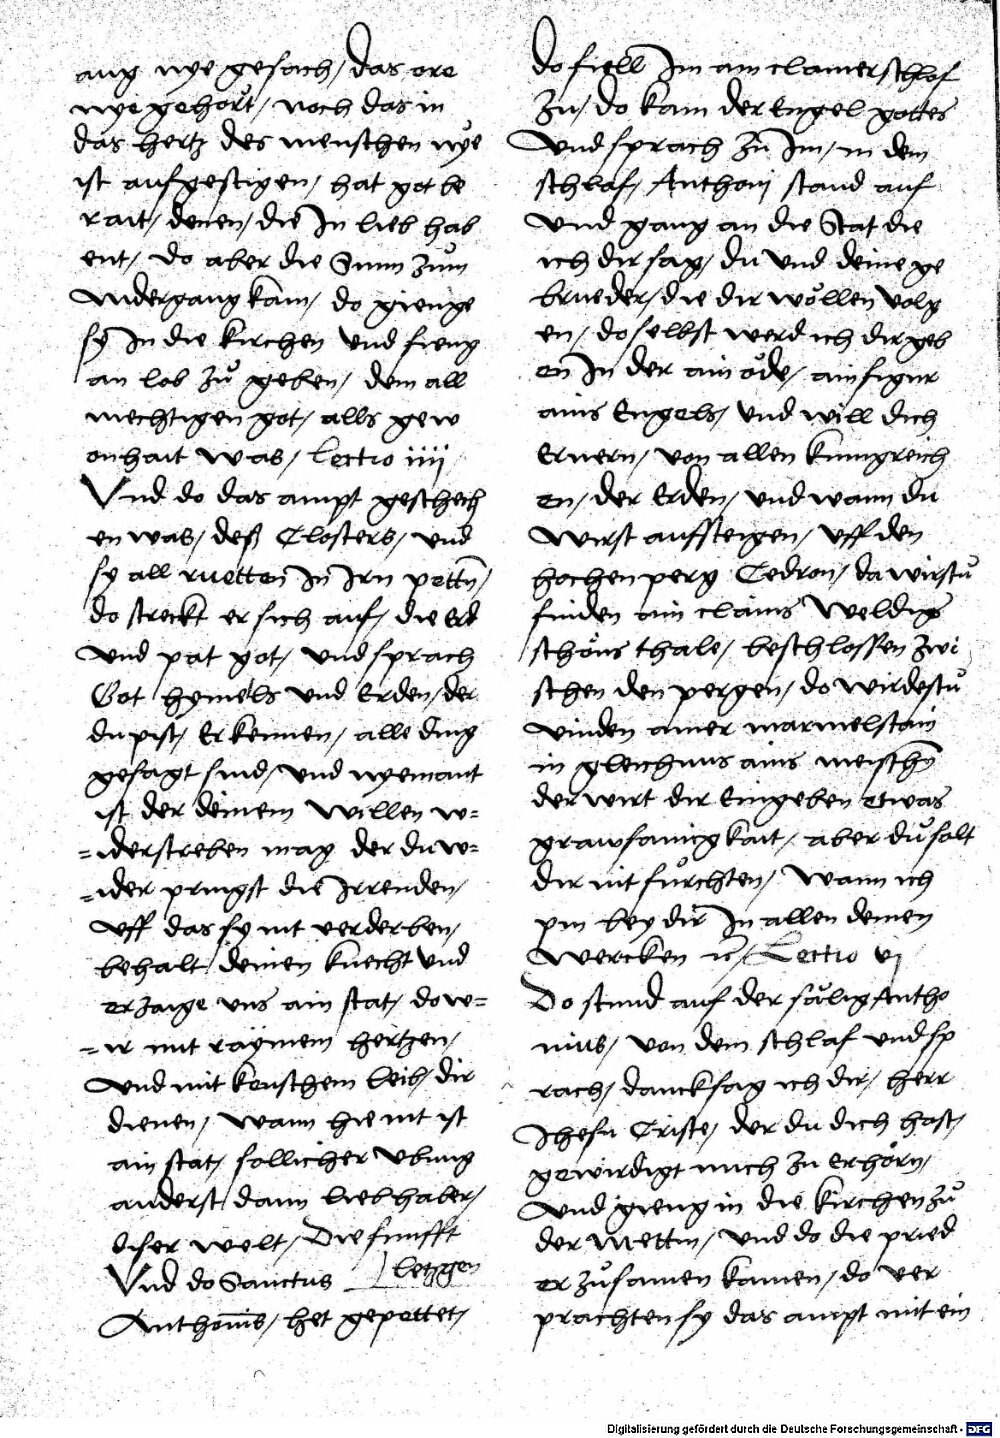 aug nye gesach, das ore
nye gehört, noch das in
das hertz des menschen nye
ist aufgestigen, hat got be
rait, denen, die In lieb hab
ent, do aber die Sunn zům
nidergang kam, do gienge
sy In die kirchen und fieng
an lob zů geben, dem all
mechtigen got, alls gew
onhait was, Lectio iiij
Und do das ampt geschech
en was, deß Closters, und
sy all ruetten In Irn pettn,
do streckt er sich auf, die erd
und pat got, und sprach
Got hymels und Erden, der
du pist, Erkennen, alle ding
gesagt sind, und nyemant
ist der deinem willen w=
=iderstreben mag der du w=
=ider pringst die Irrenden,
uff das sy nit verderben,
behalt deinen knecht und
erzaige uns ain stat, do w=
=ir mit raynem hertzen,
und mit keuschem leib, dir
dienen, wann hie nit ist
ain stat, sollicher ubung
anderst dann liebhaber,
diser welt, Die funfft
Und do Sanctus letzgen
Anthonius, het gepettet,
do fiell Im ain clainer schlof
zu, do kam der Engel gottes
und sprach zu Im, in dem
schlaf, Anthonj stand auf
und gang an die Stat die
ich dir sag, du und deine ge
brueder, die dir wöllen volg
en, doselbst werd ich dir geb
en In der ainöde, ain figur
ains Engels, und will dich
Ernern, von allen kunigreich
en, der Erden, und wann du
wirst aufsteigen, uff den
hochen perg Cedron, da wirstu
finden ain clains weldigs
schöns thale, beschlossen zwi
schen den pergen, do wirdestu
vinden ainer marmelstain
in gleichnus ains menschen
der wirt dir Eingeben etwas
grawsamigkait, aber du solt
dir nit furchten, wann ich
pin bey dir In allen deinen
wercken Lectio vj
Do stund auf der sälig Antho
nius, von dem schlaf und sp
rach, dancksag ich dir, herr
Jhesu Criste, der du dich hast,
gewirdigt mich zu Erhörn,
und gieng in die kirchen zů
der Mettin, und do die pried
er zusamen kamen, do ver
prachten sy das ampt mit ein
Digitalisierung gefördert durch die Deutsche Forschungsgemeinschaft - DFG